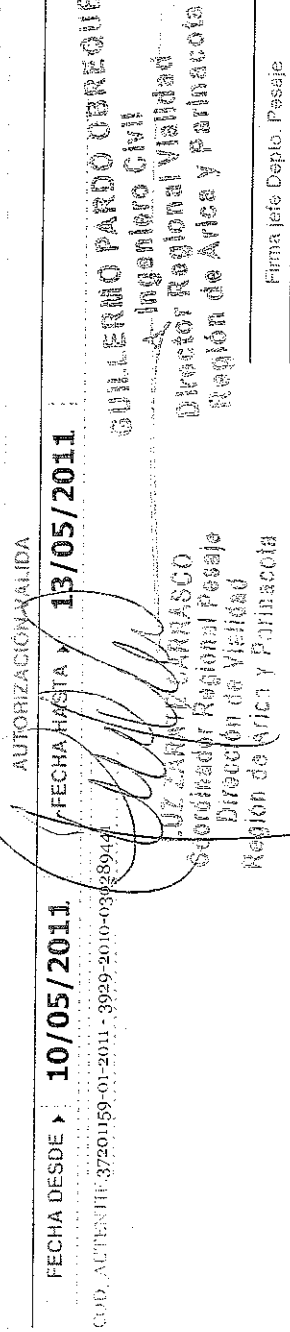 AUTORIZACIÓN VALIDA
FECHA DESDE ▸ 10/05/2011 FECHA HASTA ▸ 13/05/2011
COD. AUTENTIF 37201159-01-2011 - 3929-2010-039289441
LUZ CARRASCO
Coordinador Regional Pesaje
Dirección de Vialidad
Región de Arica y Parinacota
GUILLERMO PARDO OBREQUE
Ingeniero Civil
Director Regional Vialidad
Región de Arica y Parinacota
Firma Jefe Depto. Pesaje